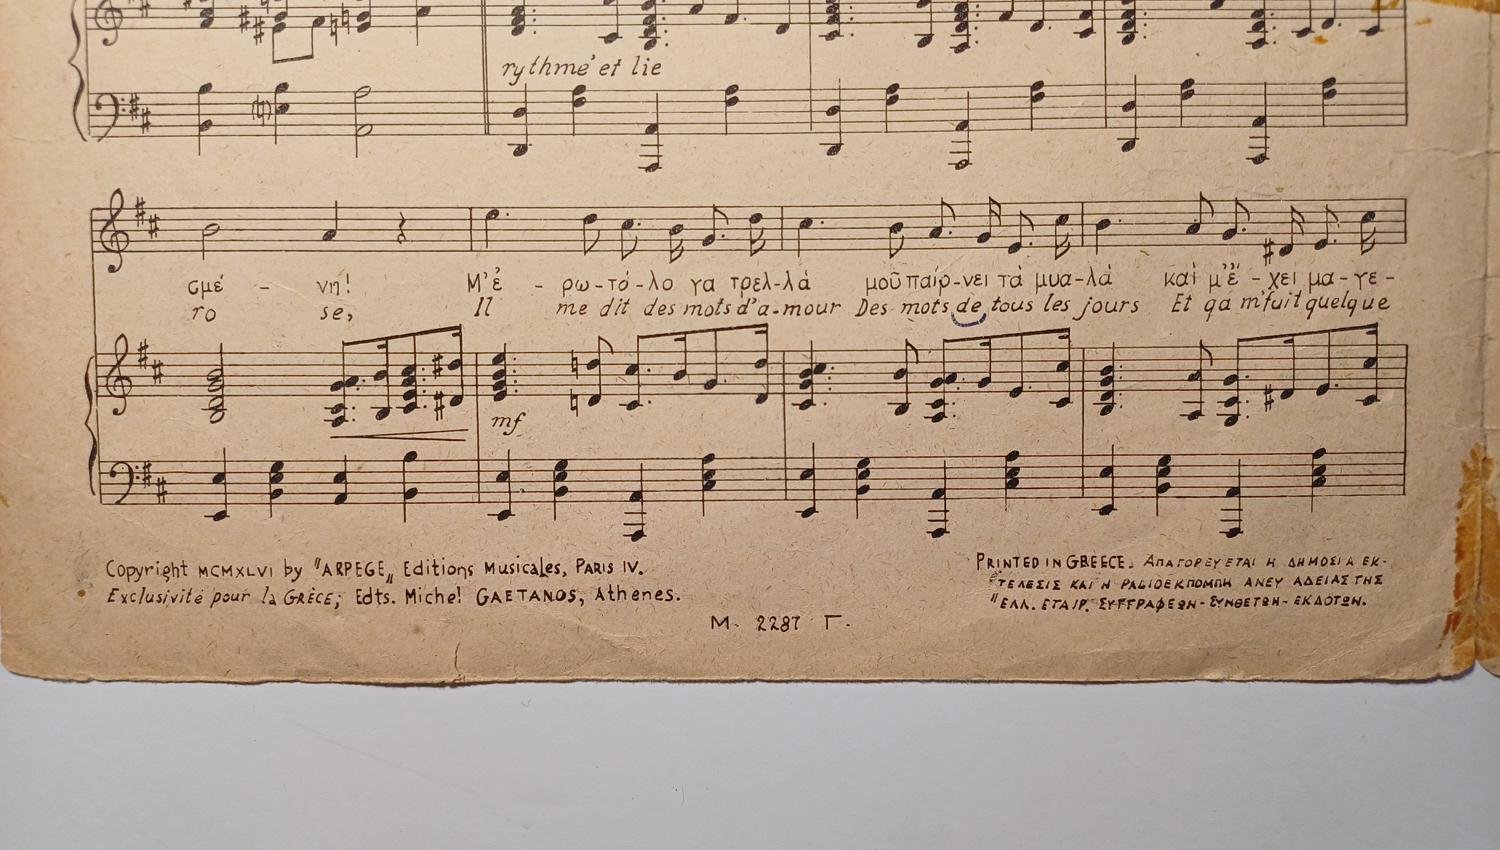 rythmé et lie
σμέ - νη! Μ'ἐ - ρω-τό-λο γα τρελ-λά μοῦ παίρ-νει τὰ μυα-λά καί μ'ἔ - χει μα-γε-
ro se, Il me dit des mots d'a-mour Des mots de tous les jours Et ça m'fuit quelque
mf
Copyright MCMXLVI by "ARPEGE„ Editions Musicales, PARIS IV.
Exclusivité pour la GRÈCE; Edts. Michel GAETANOS, Athenes.
PRINTED IN GREECE. ΑΠΑΓΟΡΕΥΕΤΑΙ Η ΔΗΜΟΣΙΑ ΕΚ-
ΤΕΛΕΣΙΣ ΚΑΙ Η ΡΑΔΙΟΕΚΠΟΜΠΗ ΑΝΕΥ ΑΔΕΙΑΣ ΤΗΣ
"ΕΛΛ. ΕΤΑΙΡ. ΣΥΓΓΡΑΦΕΩΝ - ΣΥΝΘΕΤΩΝ - ΕΚΔΟΤΩΝ.
M. 2287 Γ.